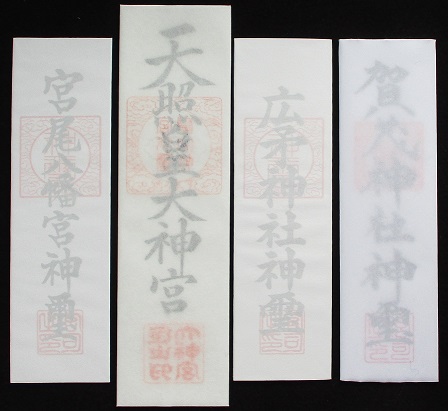 賀茂神社神璽
広矛神社神璽
天照皇大神宮
宮尾八幡宮神璽